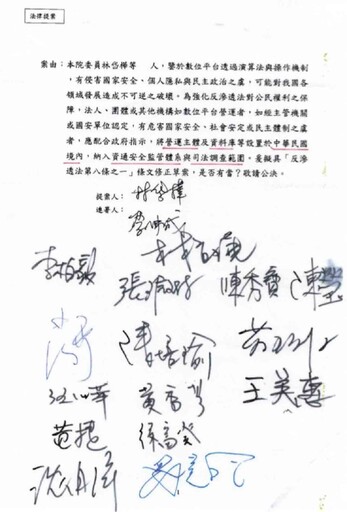 法律提案
案由：本院委員林岱樺等　人，鑒於數位平台透過演算法與操作機制，
有侵害國家安全、個人隱私與民主政治之虞，可能對我國各
領域發展造成不可逆之破壞。為強化反滲透法對公民權利之保
障，法人、團體或其他機構如數位平台營運者，如經主管機關
或國安單位認定，有危害國家安全、社會安定或民主體制之虞
者，應配合政府指示，將營運主體及資料庫等設置於中華民國
境內，納入資通安全監管體系與司法調查範圍。爰擬具「反滲
透法第八條之一」條文修正草案，是否有當？敬請公決。
提案人：林岱樺
連署人：
李柏毅
陳秀寳
陳培瑜
王美惠
黃捷
徐富癸